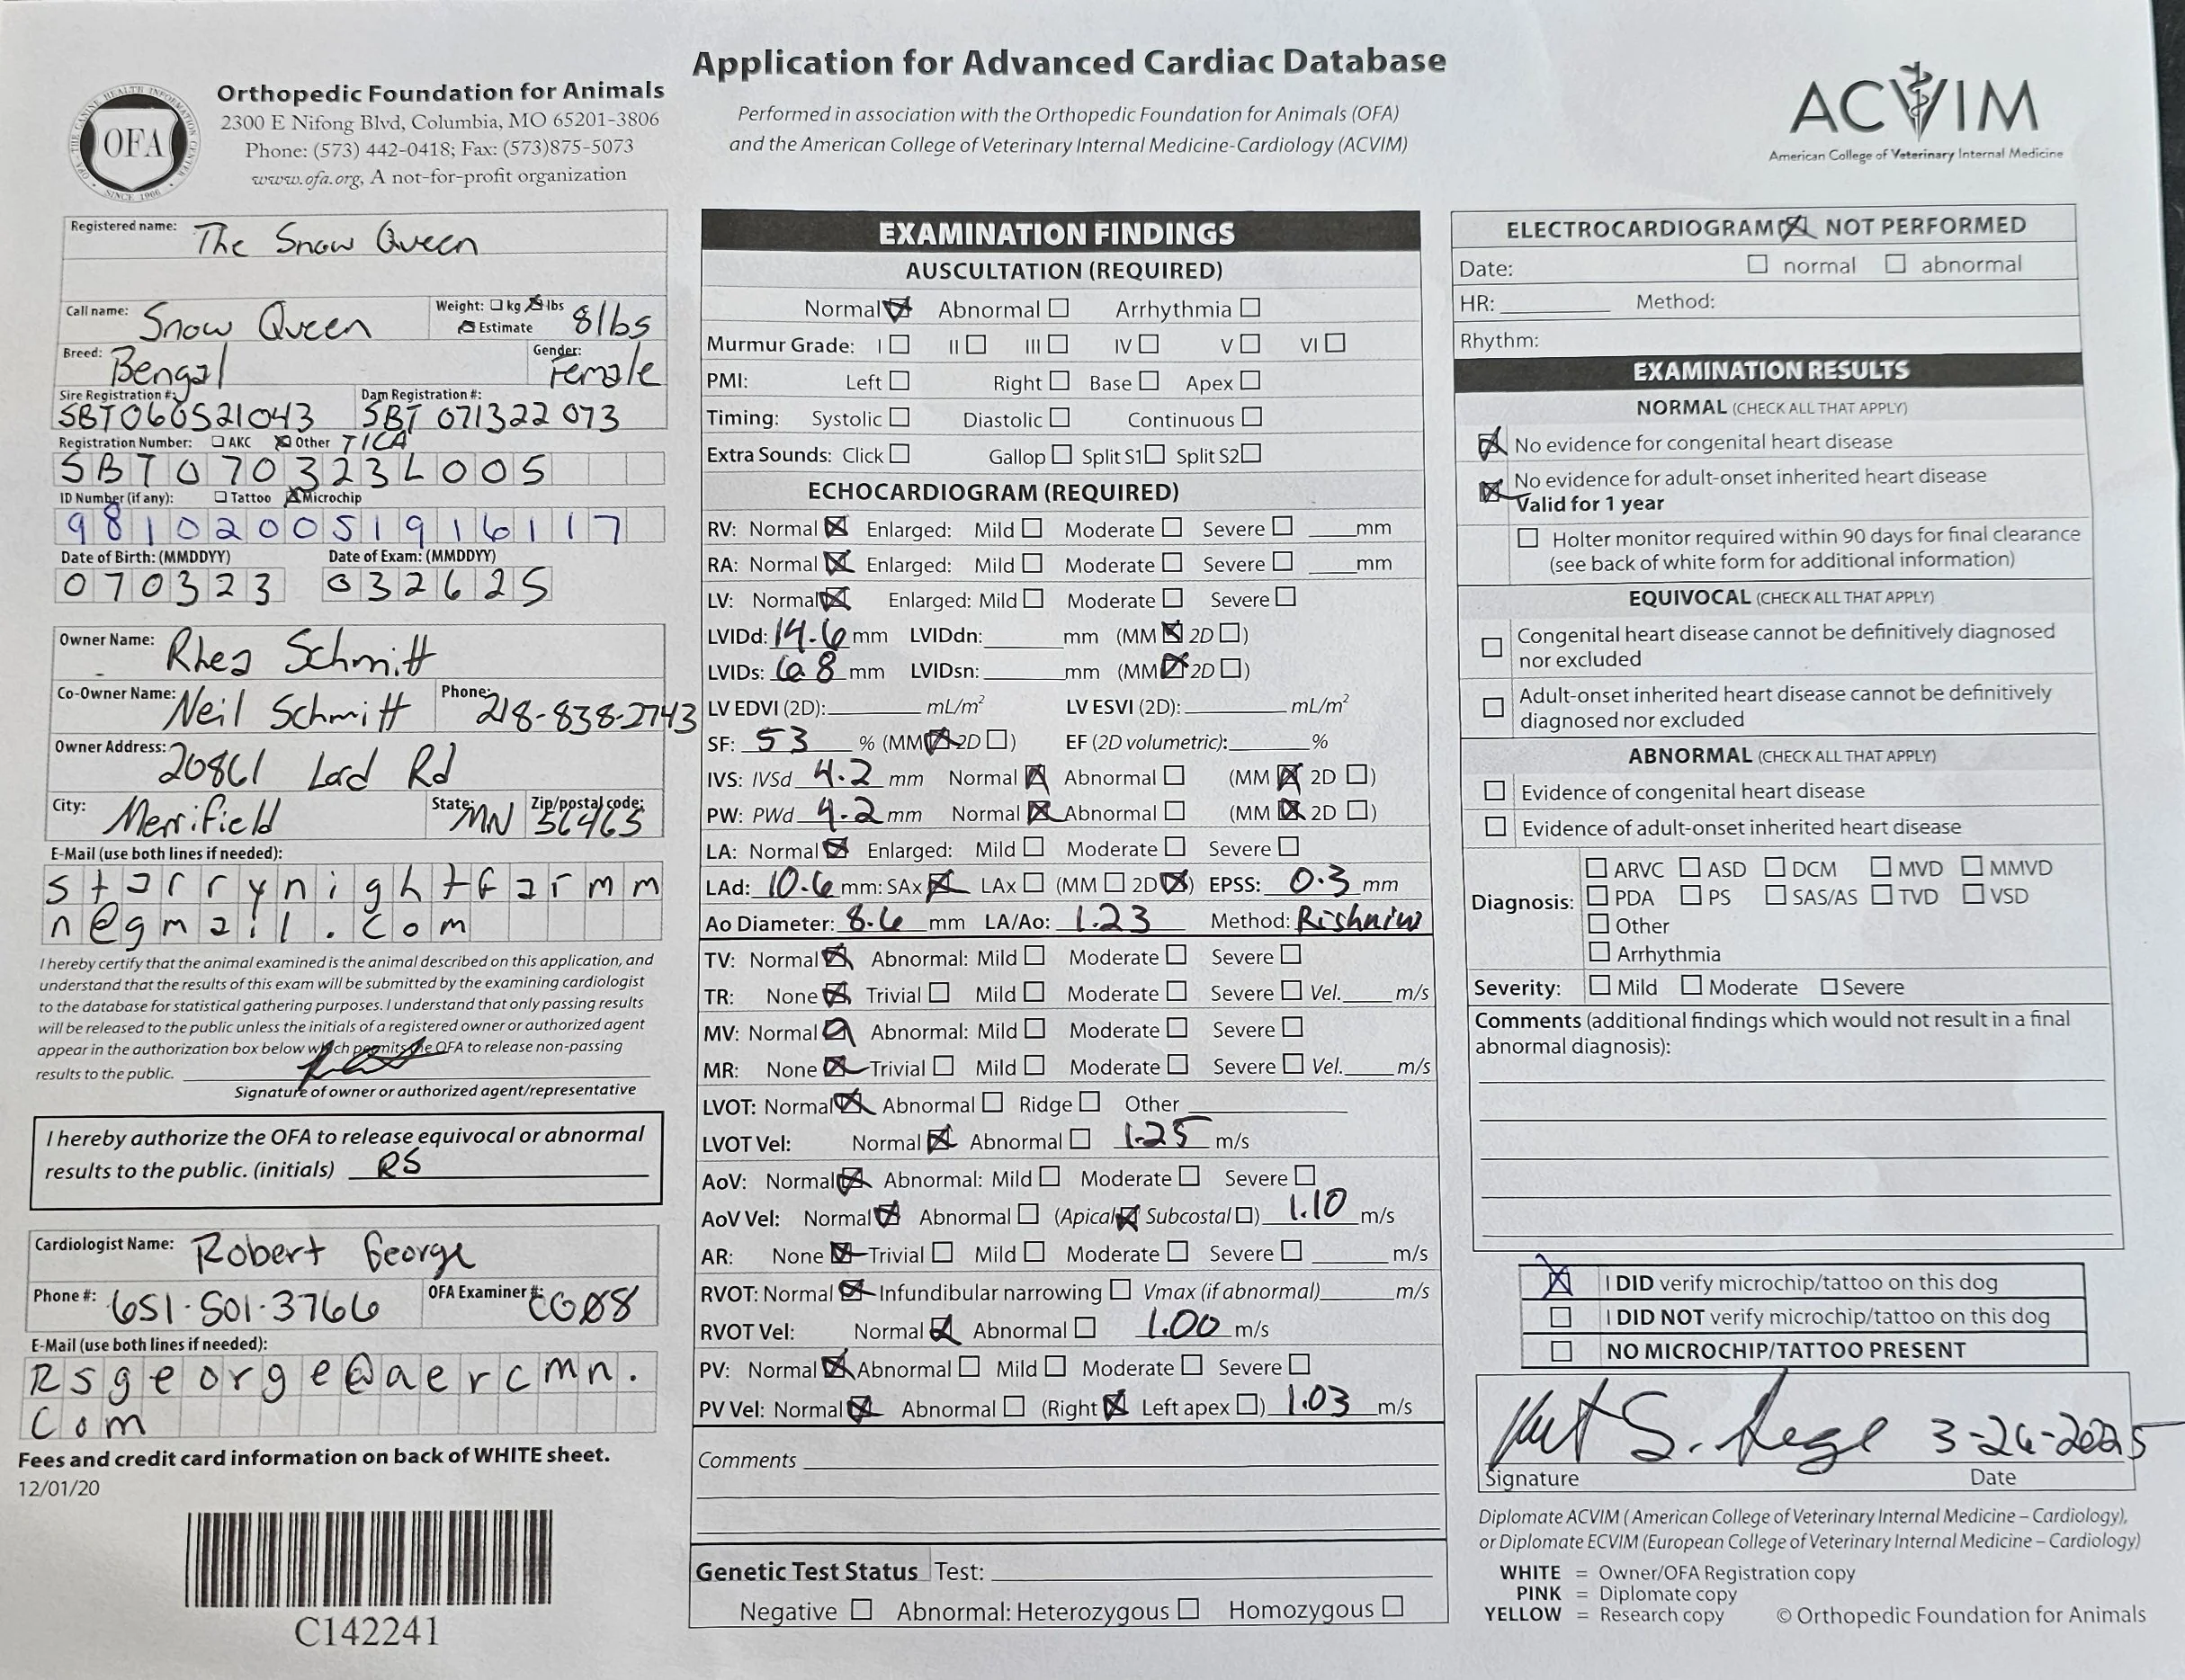 Application for Advanced Cardiac Database
Performed in association with the Orthopedic Foundation for Animals (OFA)
and the American College of Veterinary Internal Medicine-Cardiology (ACVIM)
OFA
Orthopedic Foundation for Animals
2300 E Nifong Blvd, Columbia, MO 65201-3806
Phone: (573) 442-0418; Fax: (573)875-5073
www.ofa.org, A not-for-profit organization
ACVIM
American College of Veterinary Internal Medicine
Registered name: The Snow Queen
Call name: Snow Queen Weight: ☐ kg ☒ lbs ☒ Estimate 8lbs
Breed: Bengal Gender: Female
Sire Registration #: SBT060521043 Dam Registration #: SBT 071322 073
Registration Number: ☐ AKC ☒ Other TICA
SBT070323L005
ID Number (if any): ☐ Tattoo ☒ Microchip
981020051916117
Date of Birth: (MMDDYY) Date of Exam: (MMDDYY)
070323 032625
Owner Name: Rhea Schmitt
Co-Owner Name: Neil Schmitt Phone: 218-838-2743
Owner Address: 20861 Lord Rd
City: Merrifield State: MN Zip/postal code: 56465
E-Mail (use both lines if needed):
starrynightfarmm
n@gmail.com
I hereby certify that the animal examined is the animal described on this application, and
understand that the results of this exam will be submitted by the examining cardiologist
to the database for statistical gathering purposes. I understand that only passing results
will be released to the public unless the initials of a registered owner or authorized agent
appear in the authorization box below which permits the OFA to release non-passing
results to the public.
Signature of owner or authorized agent/representative
I hereby authorize the OFA to release equivocal or abnormal
results to the public. (initials) RS
Cardiologist Name: Robert George
Phone #: 651-501-3766 OFA Examiner #: CG08
E-Mail (use both lines if needed):
Rsgeorge@aercmn.
com
Fees and credit card information on back of WHITE sheet.
12/01/20
C142241
EXAMINATION FINDINGS
AUSCULTATION (REQUIRED)
Normal ☒ Abnormal ☐ Arrhythmia ☐
Murmur Grade: I ☐ II ☐ III ☐ IV ☐ V ☐ VI ☐
PMI: Left ☐ Right ☐ Base ☐ Apex ☐
Timing: Systolic ☐ Diastolic ☐ Continuous ☐
Extra Sounds: Click ☐ Gallop ☐ Split S1 ☐ Split S2 ☐
ECHOCARDIOGRAM (REQUIRED)
RV: Normal ☒ Enlarged: Mild ☐ Moderate ☐ Severe ☐ ____mm
RA: Normal ☒ Enlarged: Mild ☐ Moderate ☐ Severe ☐ ____mm
LV: Normal ☒ Enlarged: Mild ☐ Moderate ☐ Severe ☐
LVIDd: 14.6 mm LVIDdn: ____ mm (MM ☒ 2D ☐)
LVIDs: 6.8 mm LVIDsn: ____ mm (MM ☒ 2D ☐)
LV EDVI (2D): ____ mL/m² LV ESVI (2D): ____ mL/m²
SF: 53 % (MM ☒ 2D ☐) EF (2D volumetric): ____ %
IVS: IVSd 4.2 mm Normal ☒ Abnormal ☐ (MM ☒ 2D ☐)
PW: PWd 4.2 mm Normal ☒ Abnormal ☐ (MM ☒ 2D ☐)
LA: Normal ☒ Enlarged: Mild ☐ Moderate ☐ Severe ☐
LAd: 10.6 mm: SAx ☒ LAx ☐ (MM ☐ 2D ☒) EPSS: 0.3 mm
Ao Diameter: 8.6 mm LA/Ao: 1.23 Method: Rishniw
TV: Normal ☒ Abnormal: Mild ☐ Moderate ☐ Severe ☐
TR: None ☒ Trivial ☐ Mild ☐ Moderate ☐ Severe ☐ Vel. ____ m/s
MV: Normal ☒ Abnormal: Mild ☐ Moderate ☐ Severe ☐
MR: None ☒ Trivial ☐ Mild ☐ Moderate ☐ Severe ☐ Vel. ____ m/s
LVOT: Normal ☒ Abnormal ☐ Ridge ☐ Other ____
LVOT Vel: Normal ☒ Abnormal ☐ 1.25 m/s
AoV: Normal ☒ Abnormal: Mild ☐ Moderate ☐ Severe ☐
AoV Vel: Normal ☒ Abnormal ☐ (Apical ☒ Subcostal ☐) 1.10 m/s
AR: None ☒ Trivial ☐ Mild ☐ Moderate ☐ Severe ☐ ____ m/s
RVOT: Normal ☒ Infundibular narrowing ☐ Vmax (if abnormal) ____ m/s
RVOT Vel: Normal ☒ Abnormal ☐ 1.00 m/s
PV: Normal ☒ Abnormal ☐ Mild ☐ Moderate ☐ Severe ☐
PV Vel: Normal ☒ Abnormal ☐ (Right ☒ Left apex ☐) 1.03 m/s
Comments
Genetic Test Status Test:
Negative ☐ Abnormal: Heterozygous ☐ Homozygous ☐
ELECTROCARDIOGRAM ☒ NOT PERFORMED
Date: ☐ normal ☐ abnormal
HR: ____ Method:
Rhythm:
EXAMINATION RESULTS
NORMAL (CHECK ALL THAT APPLY)
☒ No evidence for congenital heart disease
☒ No evidence for adult-onset inherited heart disease
Valid for 1 year
☐ Holter monitor required within 90 days for final clearance
(see back of white form for additional information)
EQUIVOCAL (CHECK ALL THAT APPLY)
☐ Congenital heart disease cannot be definitively diagnosed
nor excluded
☐ Adult-onset inherited heart disease cannot be definitively
diagnosed nor excluded
ABNORMAL (CHECK ALL THAT APPLY)
☐ Evidence of congenital heart disease
☐ Evidence of adult-onset inherited heart disease
Diagnosis: ☐ ARVC ☐ ASD ☐ DCM ☐ MVD ☐ MMVD
☐ PDA ☐ PS ☐ SAS/AS ☐ TVD ☐ VSD
☐ Other
☐ Arrhythmia
Severity: ☐ Mild ☐ Moderate ☐ Severe
Comments (additional findings which would not result in a final
abnormal diagnosis):
☒ I DID verify microchip/tattoo on this dog
☐ I DID NOT verify microchip/tattoo on this dog
☐ NO MICROCHIP/TATTOO PRESENT
3-26-2025
Signature Date
Diplomate ACVIM ( American College of Veterinary Internal Medicine – Cardiology),
or Diplomate ECVIM (European College of Veterinary Internal Medicine – Cardiology)
WHITE = Owner/OFA Registration copy
PINK = Diplomate copy
YELLOW = Research copy © Orthopedic Foundation for Animals